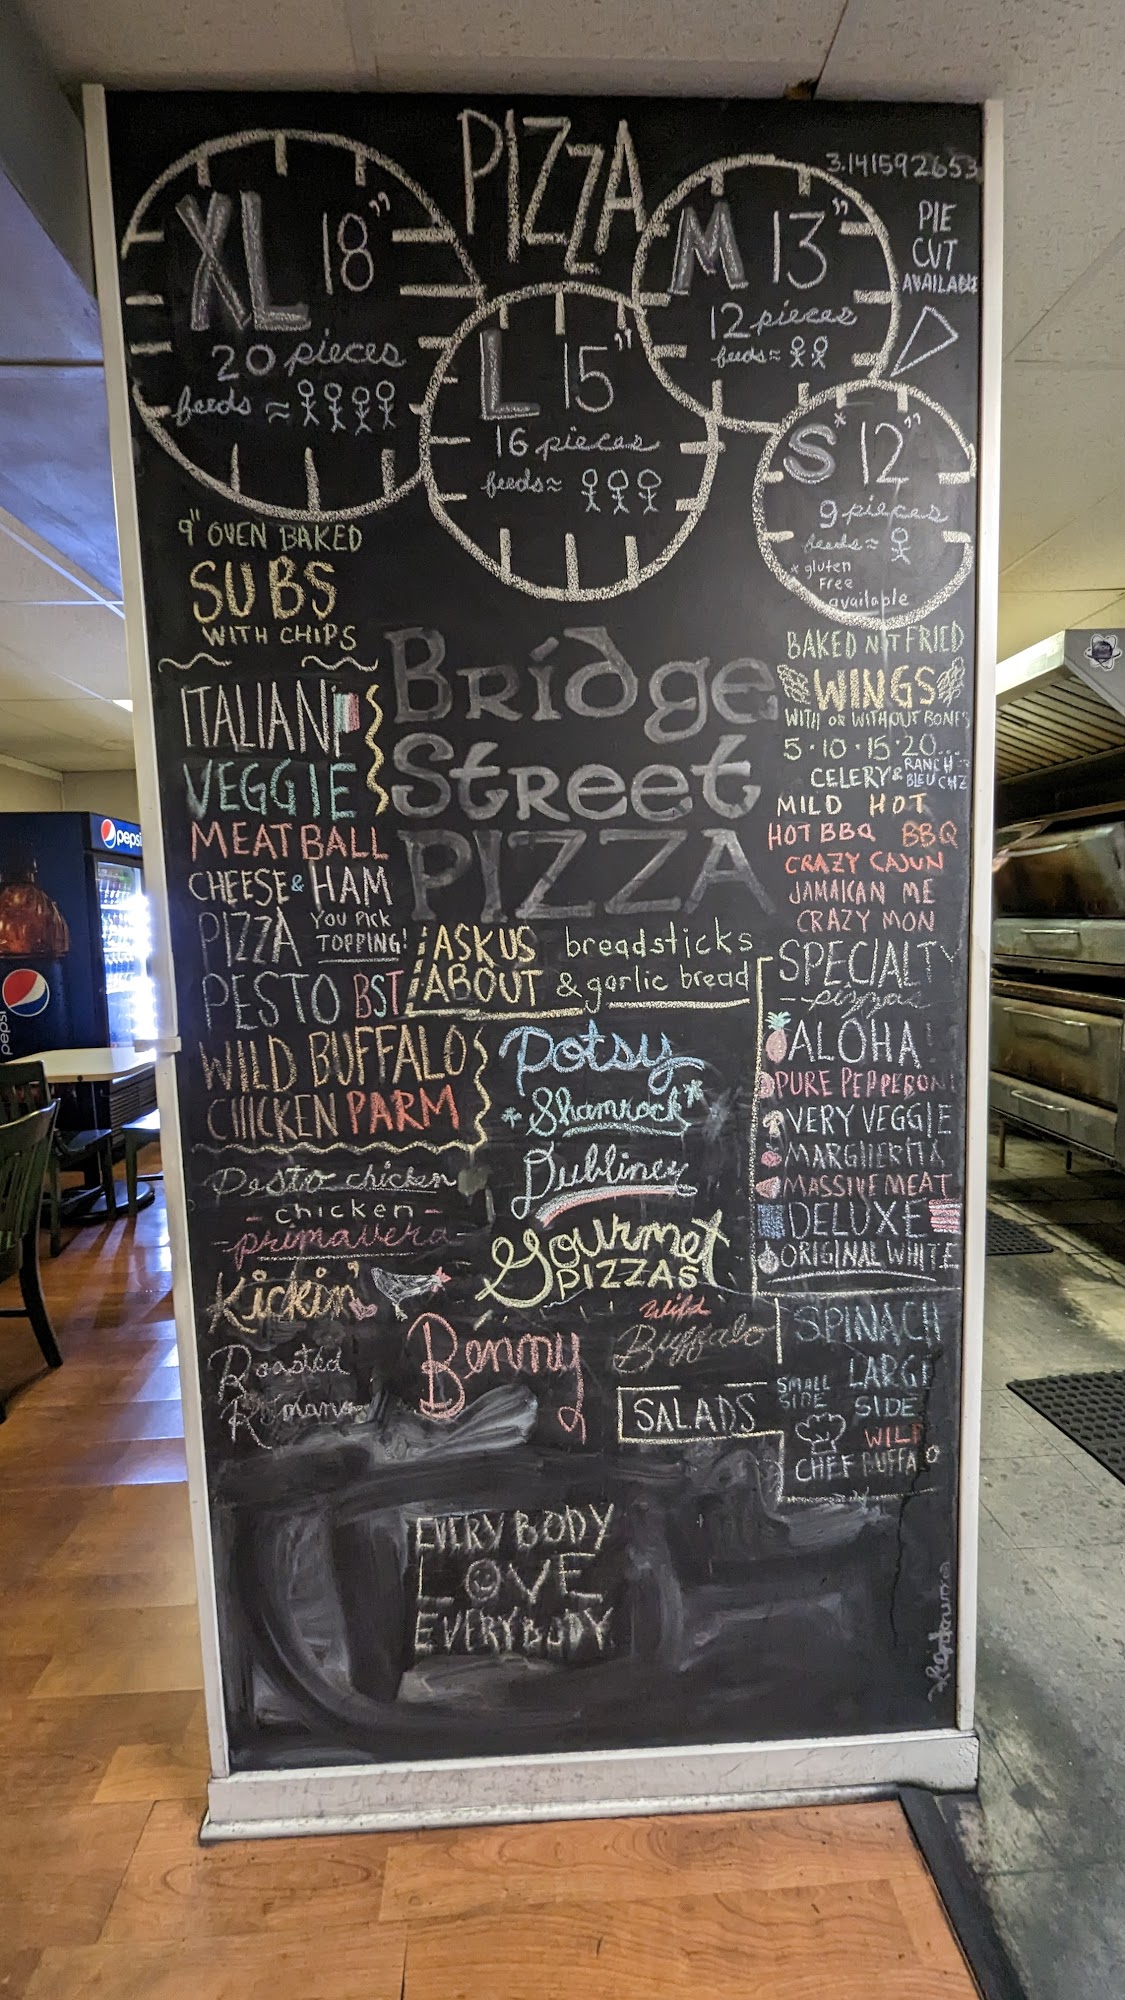 PIZZA
XL 18"
20 pieces
feeds ≈
L 15"
16 pieces
feeds ≈
M 13"
12 pieces
feeds ≈
3.141592653
PIE
CUT
AVAILABLE
S* 12"
9 pieces
feeds ≈
* gluten
free
available
9" OVEN BAKED
SUBS
WITH CHIPS
ITALIAN
VEGGIE
MEATBALL
CHEESE & HAM
PIZZA YOU PICK TOPPING!
PESTO BST
WILD BUFFALO
CHICKEN PARM
Bridge
Street
PIZZA
ASK US
ABOUT
breadsticks
& garlic bread
BAKED NOT FRIED
WINGS
WITH OR WITHOUT BONES
5·10·15·20...
CELERY & RANCH BLEU CHZ
MILD HOT
HOT BBQ BBQ
CRAZY CAJUN
JAMAICAN ME
CRAZY MON
SPECIALTY
- pizzas
ALOHA
PURE PEPPERONI
VERY VEGGIE
MARGHERITA
MASSIVE MEAT
DELUXE
ORIGINAL WHITE
Potsy
*Shamrock*
Dubliner
Gourmet
PIZZAS
Pesto chicken
- chicken -
- primavera -
Kickin'
Roasted
Romano
Benny
Wild
Buffalo
SALADS
SPINACH
SMALL
SIDE
LARGE
SIDE
CHEF
WILD
BUFFALO
EVERYBODY
LOVE
EVERYBODY
pepsi
pepsi